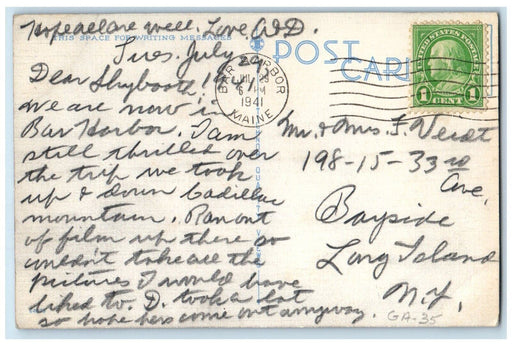 Hope all are well. Love, A.D.
THIS SPACE FOR WRITING MESSAGES
Tues. July 29,
1941
Dear
We are now in
Bar Harbor. I am
still thrilled over
the trip we took
up & down Cadillac
mountain. Ran out
of film up there so
couldn't take all the
pictures I would have
liked to. D. took a lot
so hope hers come out anyway.
POST CARD
BAR HARBOR
JUL 29
PM
1941
MAINE
UNITED STATES POSTAGE
1 CENT 1
Mr. & Mrs. F. Verdt
198-15-33rd
Ave.
Bayside
Long Island
N.Y.
GA-35